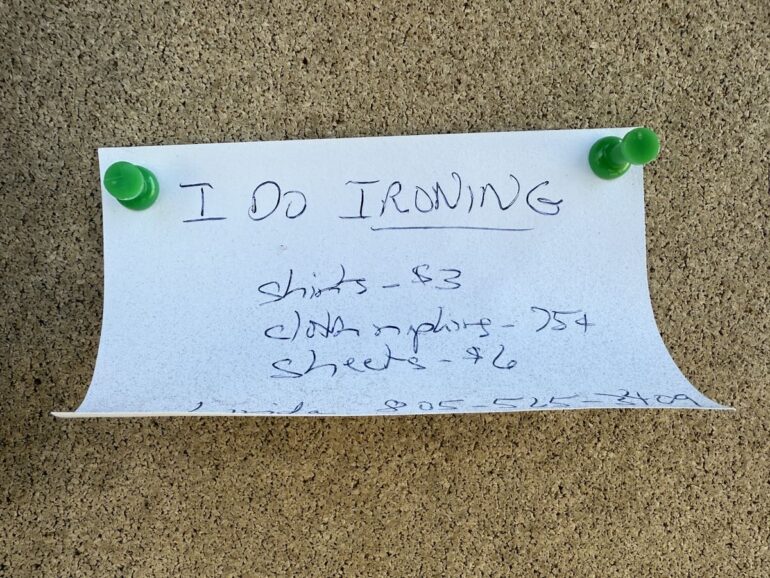 I DO IRONING
shirts - $3
cloth napkins - 75¢
sheets - $6
805-525-